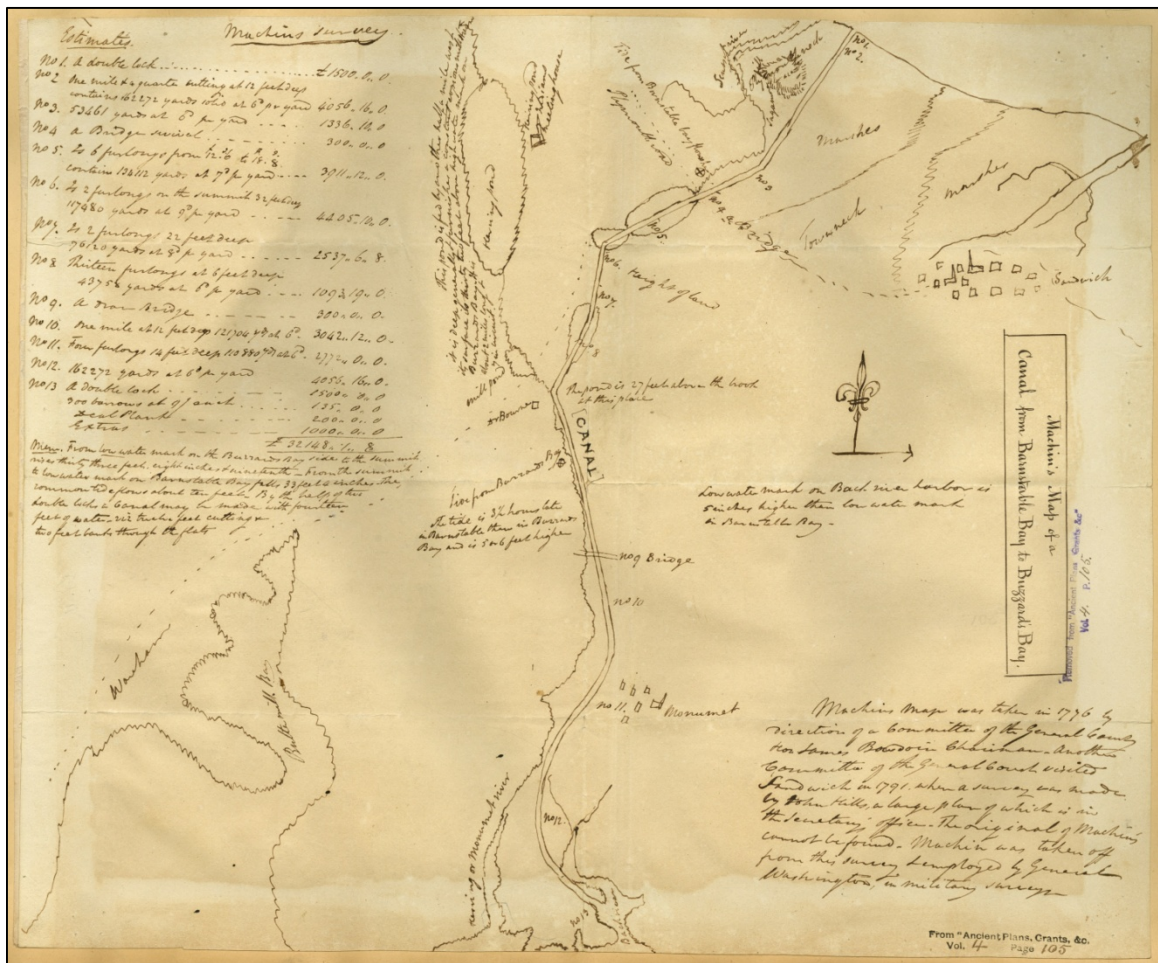 Machins survey.
Estimates.
No 1. A double lock £1500. 0. 0.
No 2 One mile & a quarter cutting at 12 feet deep
contains 162272 yards at 6d pr yard 4056. 16. 0.
No 3. 53461 yards at 6d pr yard 1336. 10. 0
No 4 a Bridge 300. 0. 0
No 5. Is 6 furlongs from to
contains 134112 yards at 7d pr yard 3911. 12. 0.
No 6. Is 2 furlongs on the summit 32 feet deep
117480 yards at 9d pr yard 4405. 10. 0.
No 7. Is 2 furlongs 22 feet deep
76120 yards at 8d pr yard 2537. 6. 8.
No 8 Thirteen furlongs at 6 feet deep
43758 yards at 6d pr yard 1093. 19. 0.
No 9. A draw Bridge 300. 0. 0.
No 10. One mile at 12 feet deep 121704 yds at 6d. 3042. 12. 0.
No 11. Four furlongs 14 feet deep 110880 yds at 6d. 2772. 0. 0.
No 12. 162272 yards at 6d pr yard 4056. 16. 0.
No 13 A double lock 1500. 0. 0
300 barrows at 9/ each 135. 0. 0
Deal Plank 200. 0. 0
Extras 1000. 0. 0
£ 32148. 1. 8
From low water mark on the Buzzards Bay side to the summit
rises thirty three feet, eight inches & nineteenth - From the summit
to low water mark on Barnstable Bay falls 33 feet 4 inches The
common tide flows about ten feet. By the help of
double locks a Canal may be made with fourteen
feet of water, viz twelve feet cutting &
two feet banks through the flats
This pond is fed by
Herring pond
Herring pond
Indians
meeting house
mill pond
Dr Bourne
Plymouth road
Marshes
marshes
Town neck
Sandwich
no 1.
no 2.
no 3
no 4 a Bridge
no 5.
no 6.
no 7.
8
Height of land
The pond is 27 feet above the brook
at this place
[CANAL]
The tide is 3½ hours late
in Barnstable than in Buzzards
Bay and is 5 or 6 feet higher
Low water mark on Back river harbor is
5 inches higher than low water mark
in Barnstable Bay -
no 9 Bridge
no 10
no 11.
Monumet
no 12.
no 13
Back river
Herring or Monumet river
Wareham
Buttermilk Bay
Machin's Map of a
Canal from Barnstable Bay to Buzzard's Bay.
Removed from "Ancient Plans Grants &c"
Vol 4. P. 105.
Machins map was taken in 1776 by
direction of a Committee of the General Court
Hon James Bowdoin Chairman - Another
Committee of the General Court visited
Sandwich in 1791. when a survey was made
by John Hills, a large plan of which is in
the Secretary's office - The original of Machins
cannot be found - Machin was taken off
from this survey & employed by General
Washington, in military surveys
From "Ancient Plans, Grants, &c.
Vol. 4 Page 105